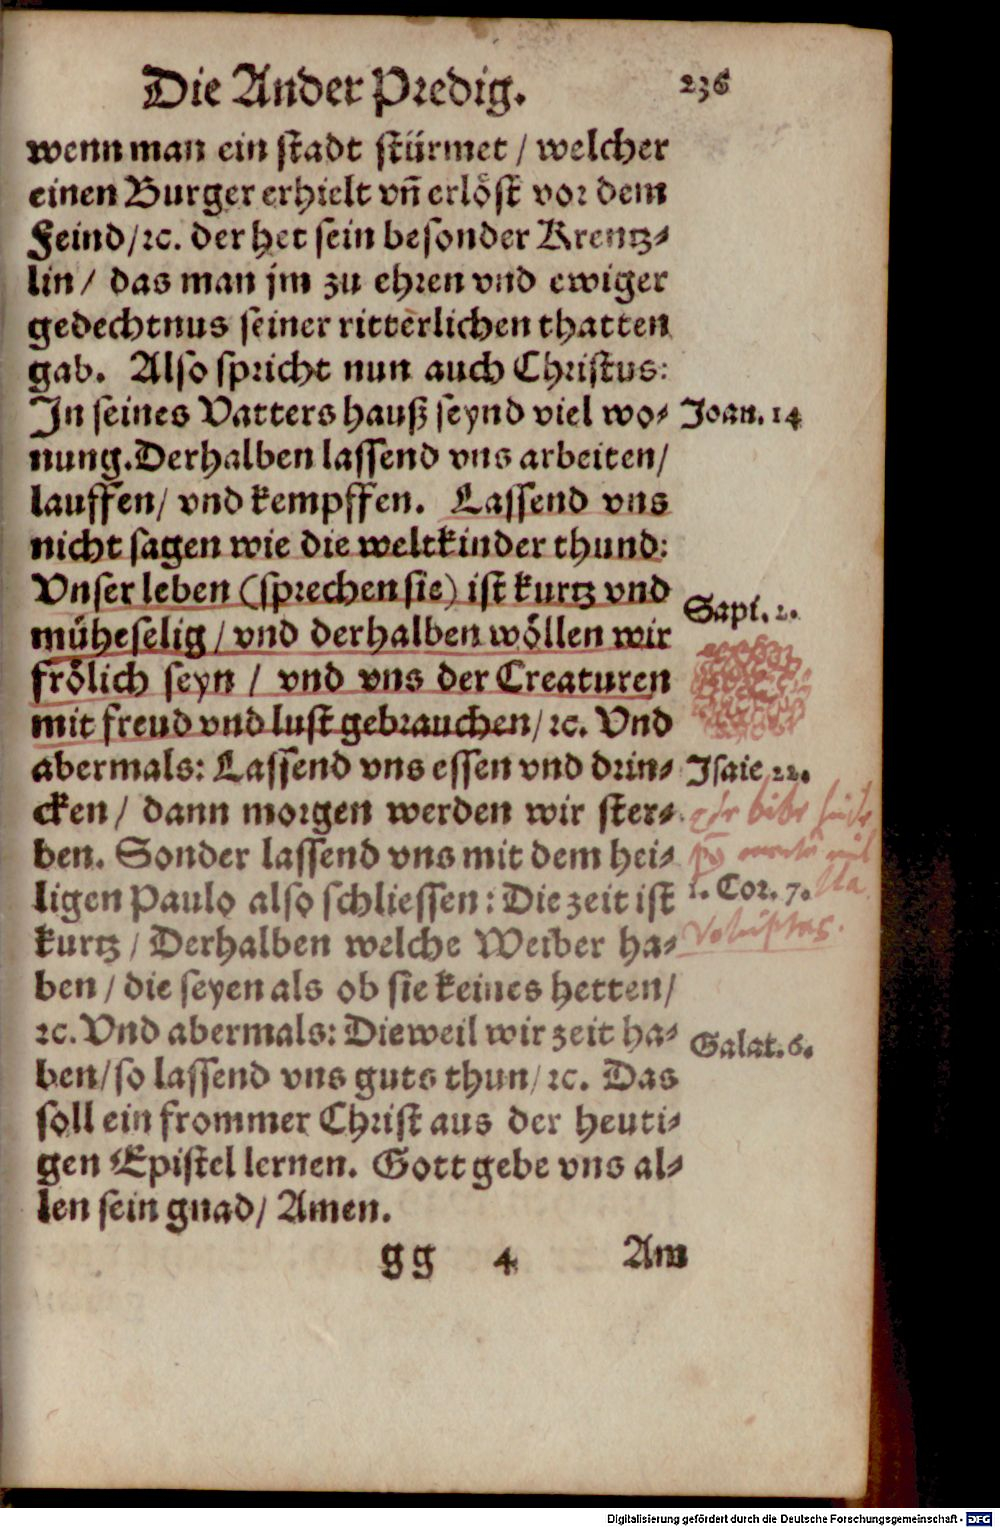 Die Ander Predig. 236
wenn man ein stadt stürmet / welcher
einen Burger erhielt vñ erlöst vor dem
Feind/ꝛc. der het sein besonder Krentz⸗
lin / das man jm zu ehren vnd ewiger
gedechtnus seiner ritterlichen thatten
gab. Also spricht nun auch Christus:
In seines Vatters hauß seynd viel wo⸗ Joan. 14
nung. Derhalben lassend vns arbeiten/
lauffen/ vnd kempffen. Lassend vns
nicht sagen wie die weltkinder thund:
Vnser leben (sprechen sie) ist kurtz vnd
Sapi. 2.
müheselig / vnd derhalben wöllen wir
frölich seyn / vnd vns der Creaturen
mit freud vnd lust gebrauchen/ ꝛc. Vnd
abermals: Lassend vns essen vnd drin⸗ Isaie 22.
cken / dann morgen werden wir ster⸗
bibe
ben. Sonder lassend vns mit dem hei⸗
ligen Paulo also schliessen: Die zeit ist 1. Cor. 7.
kurtz / Derhalben welche Weiber ha⸗ voluptas.
ben / die seyen als ob sie keines hetten/
ꝛc. Vnd abermals: Dieweil wir zeit ha⸗ Galat. 6.
ben/ so lassend vns guts thun/ ꝛc. Das
soll ein frommer Christ aus der heuti⸗
gen Epistel lernen. Gott gebe vns al⸗
len sein gnad/ Amen.
gg 4 Am
Digitalisierung gefördert durch die Deutsche Forschungsgemeinschaft - DFG